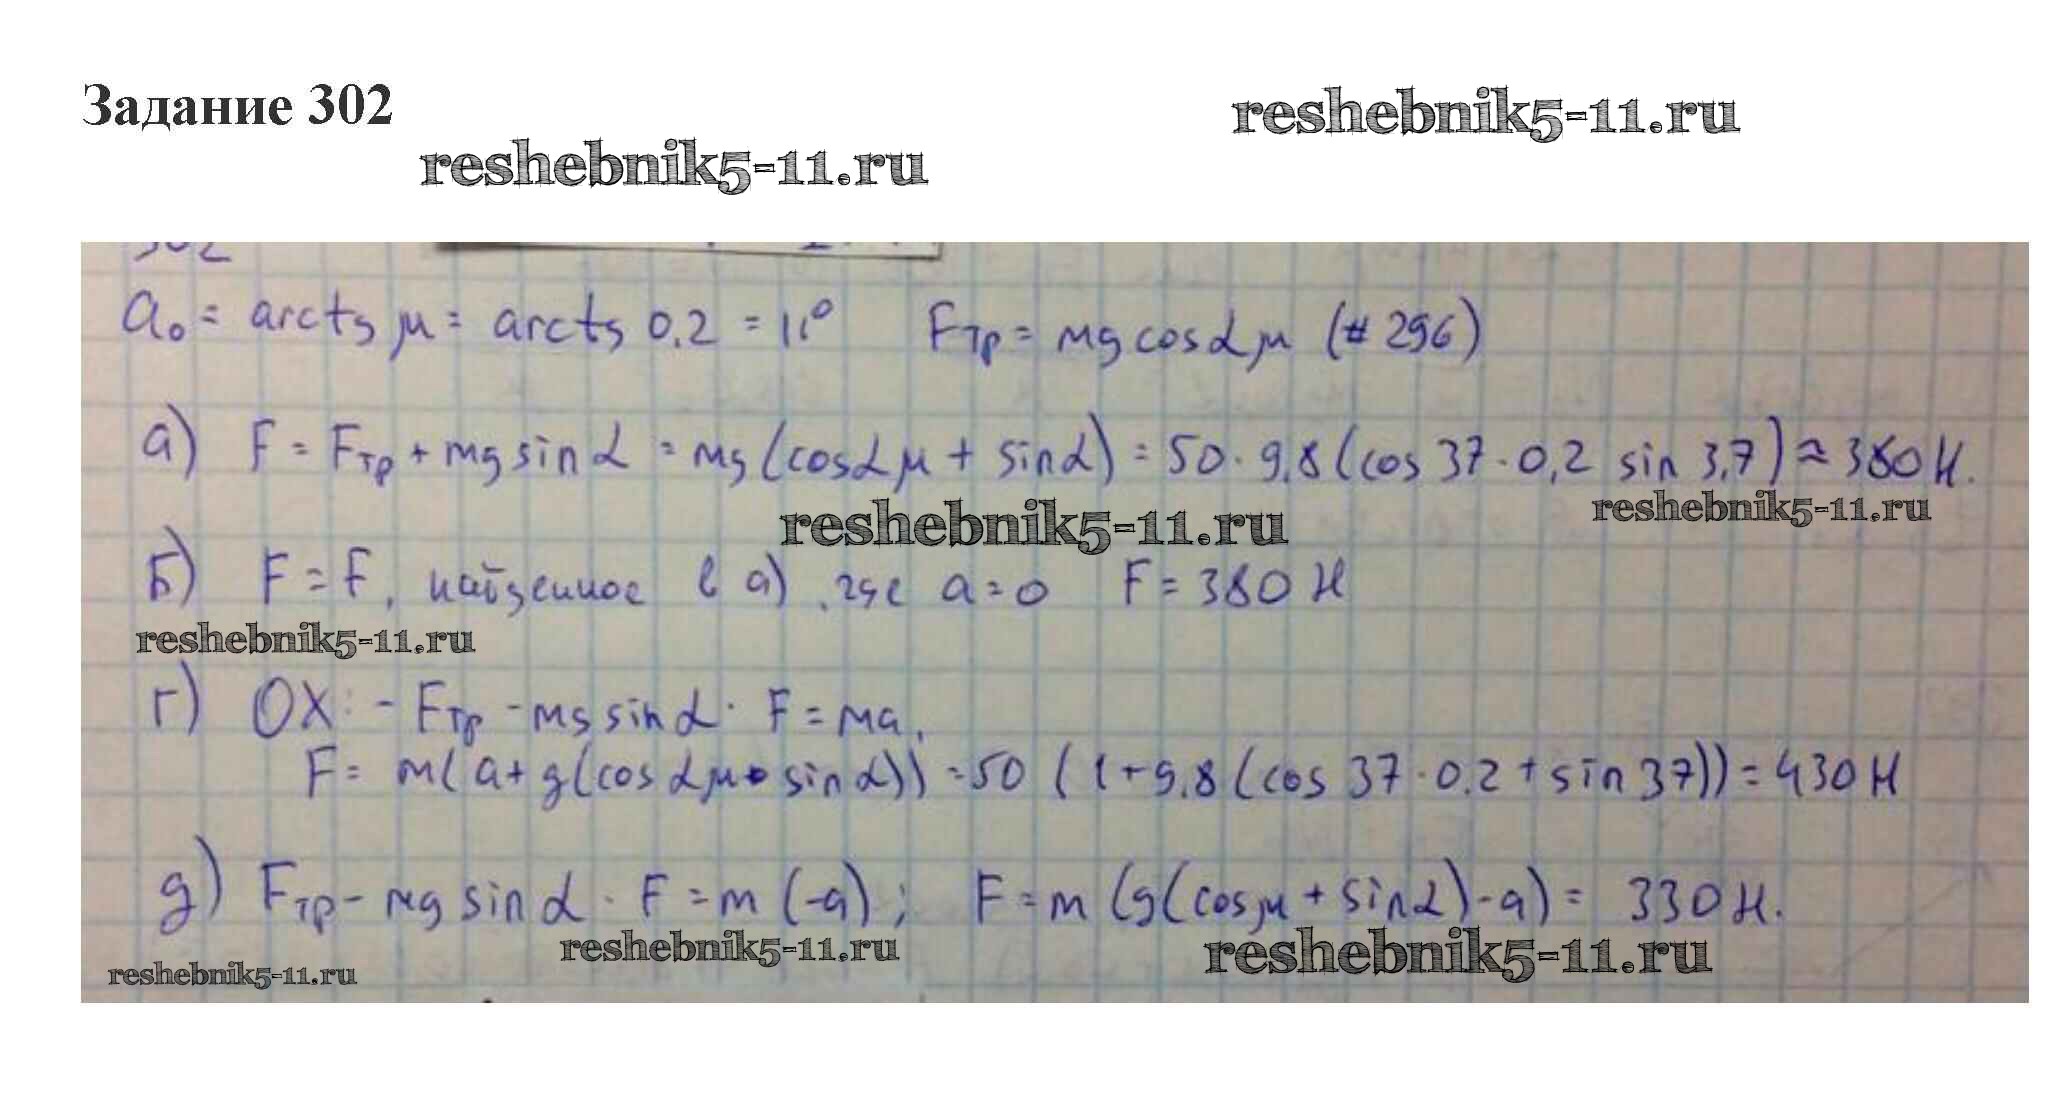 Задание 302
reshebnik5-11.ru
reshebnik5-11.ru
302
a₀ = arctg μ = arctg 0,2 = 11° Fтр = mg cosα μ (# 296)
а) F = Fтр + mg sinα = mg (cosα μ + sinα) = 50 · 9,8 (cos 37 · 0,2 sin 3,7) ≈ 380 Н.
reshebnik5-11.ru
reshebnik5-11.ru
б) F = F, найденное в а), где a = 0 F = 380 Н
reshebnik5-11.ru
г) OX: - Fтр - mg sinα · F = ma,
F = m(a + g(cosα μ + sinα)) = 50 (1 + 9,8 (cos 37 · 0,2 + sin 37)) = 430 Н
д) Fтр - mg sinα · F = m (-a); F = m (g(cos μ + sinα) - a) = 330 Н.
reshebnik5-11.ru
reshebnik5-11.ru
reshebnik5-11.ru